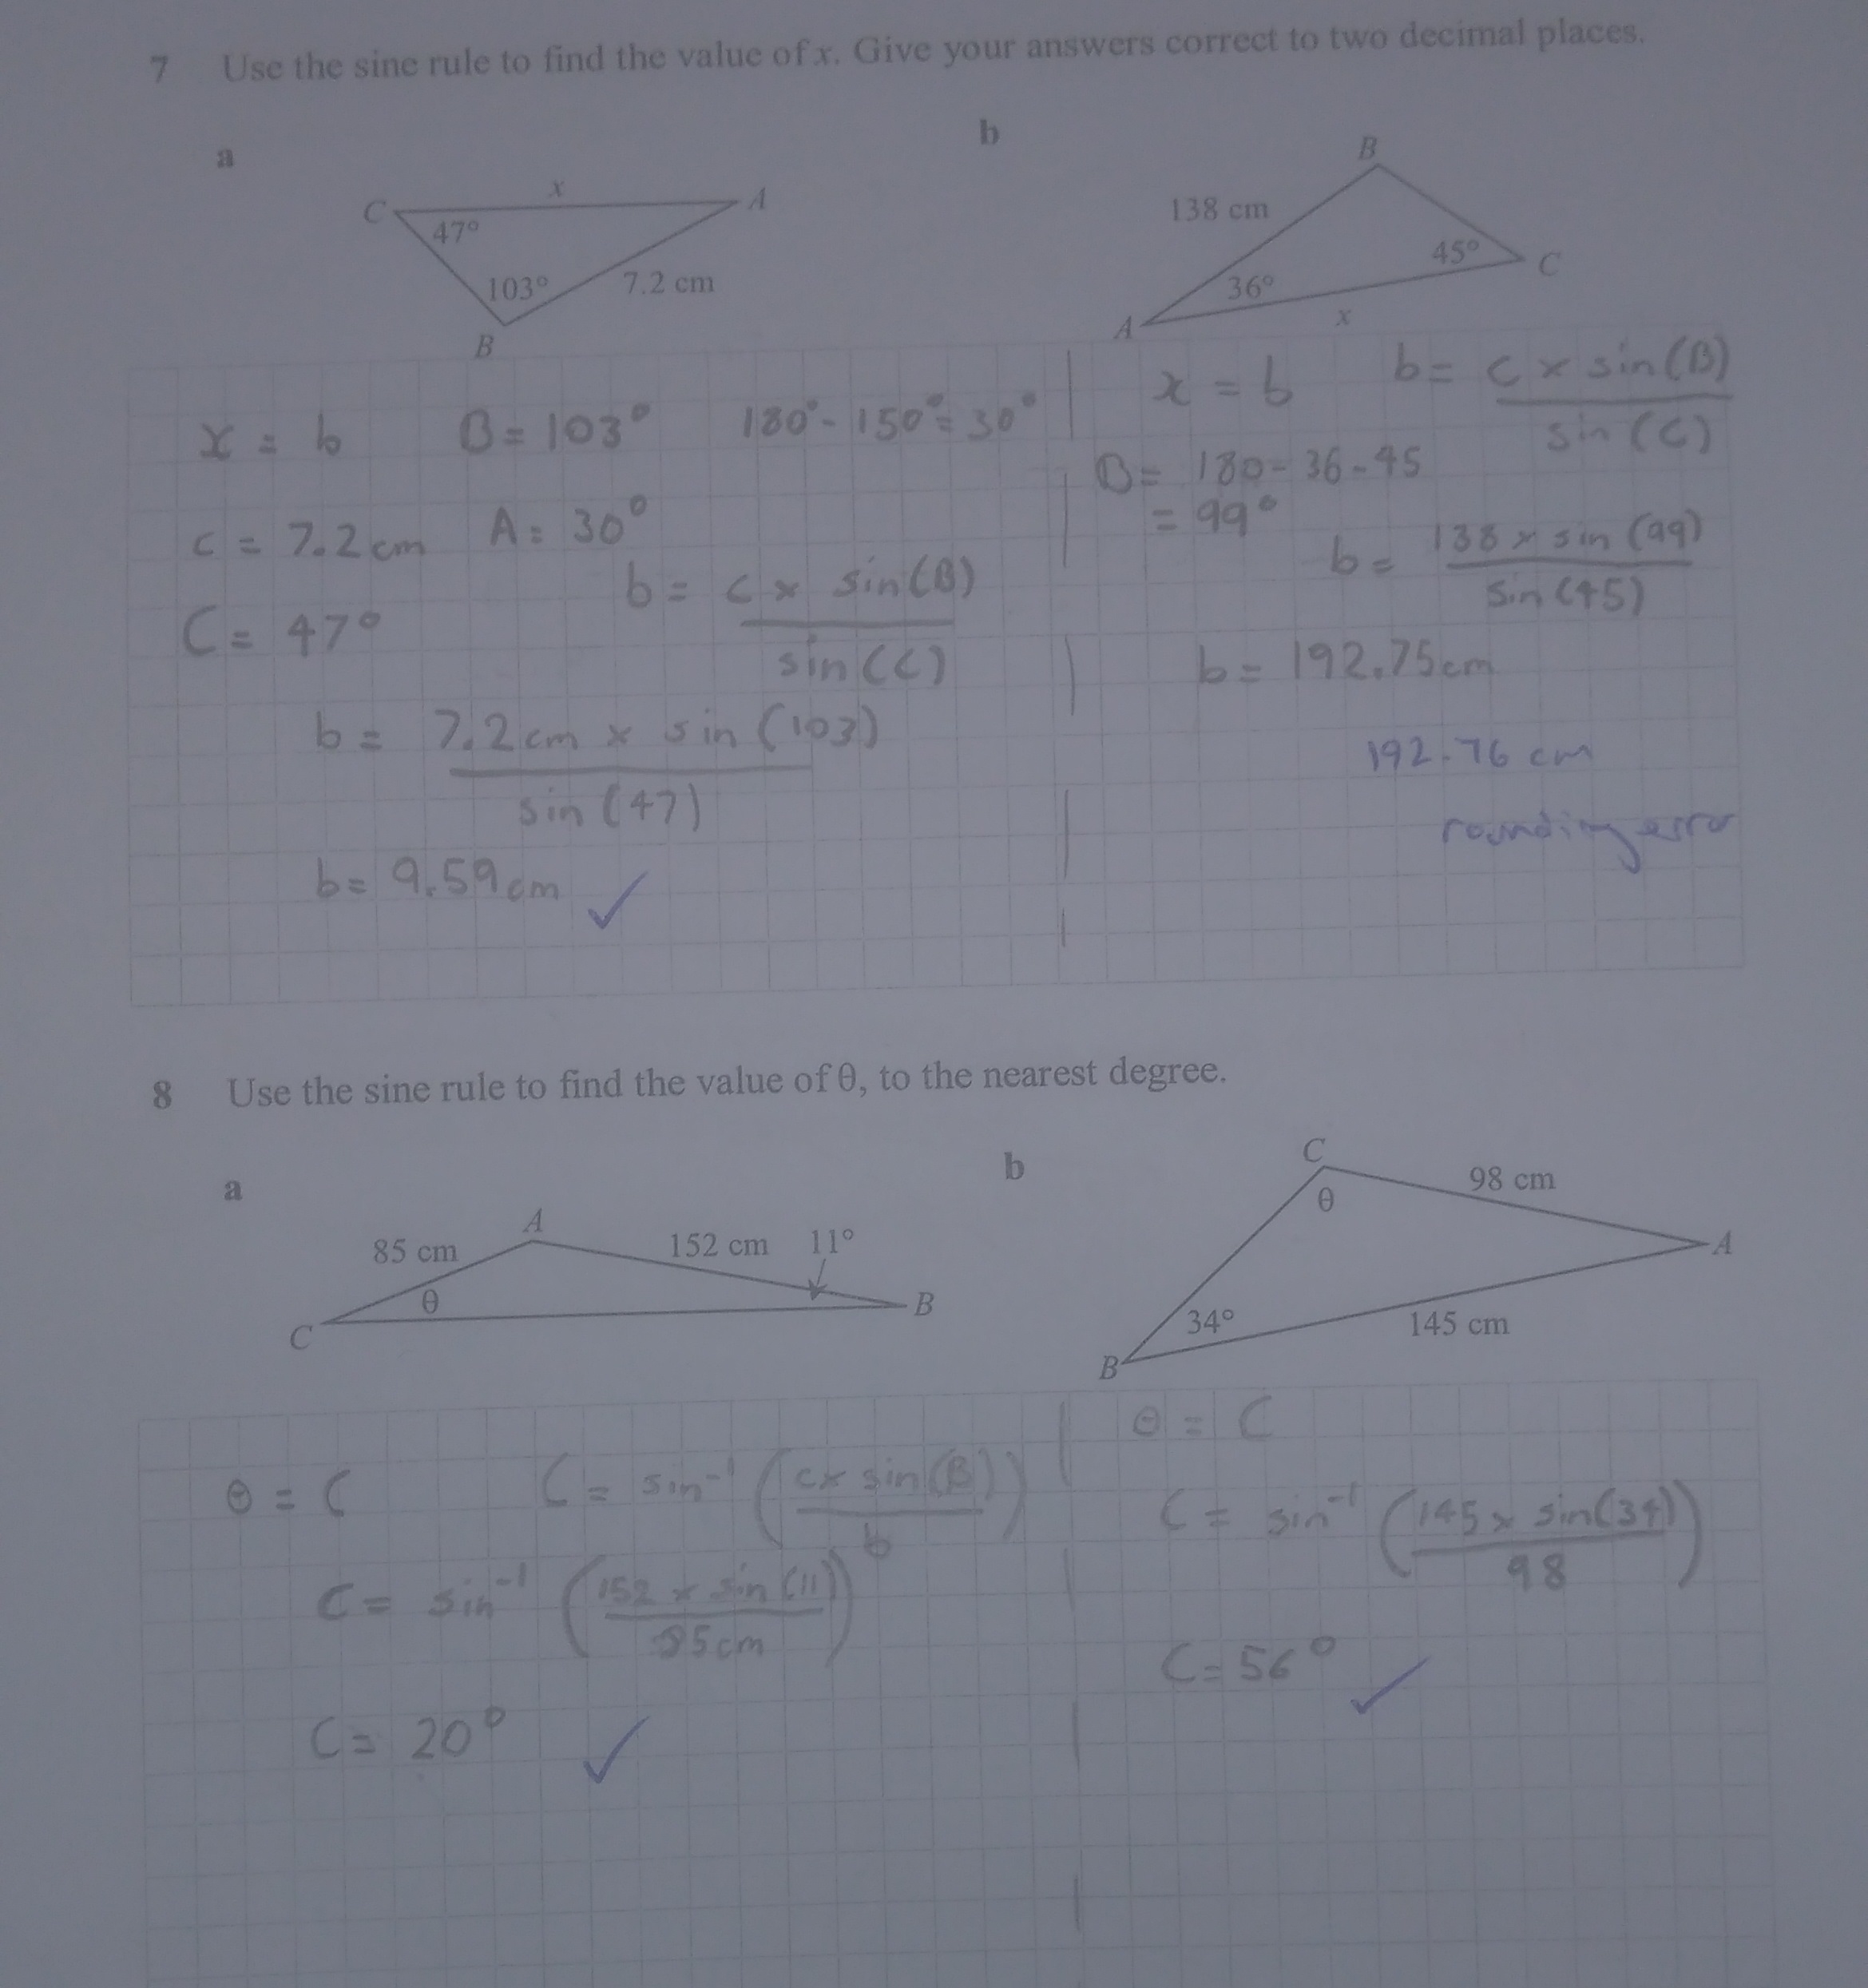 7 Use the sine rule to find the value of x. Give your answers correct to two decimal places.
a
C
x
A
47°
103°
7.2 cm
B
b
B
138 cm
45°
C
36°
A
x
x = b B = 103° 180° - 150° = 30°
c = 7.2 cm A = 30°
C = 47°
b = c × sin(B)
sin(C)
b = 7.2 cm × sin (103)
sin (47)
b = 9.59 cm ✓
x = b b = c × sin(B)
sin (C)
B = 180 - 36 - 45
= 99°
b = 138 × sin (99)
sin (45)
b = 192.75 cm
192.76 cm
rounding error
8 Use the sine rule to find the value of θ, to the nearest degree.
a
A
85 cm
152 cm
11°
θ
C
B
b
C
98 cm
θ
A
34°
145 cm
B
θ = C C = sin⁻¹ (c × sin(B))
b
C = sin⁻¹ (152 × sin (11))
85 cm
C = 20° ✓
θ = C
C = sin⁻¹ (145 × sin(34))
98
C = 56° ✓